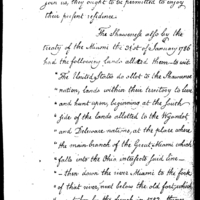 join us, they ought to be permitted to enjoy
their present residence.
The Shawnese also by the
treaty of the Miami the 31st of January 1786
had the following lands allotted them - to wit
"The United States do allot to the Shawnese
" nation, lands within their territory to live
" and hunt upon, beginning at the south
" side of the lands allotted to the Wyandot
" and Delaware nations, at the place where
" the main branch of the Great Miami which
" falls into the Ohio intersects said line -
" then down the river Miami to the fork
" of that river, next below the old fort, which
" was taken by the french in 1752, thence